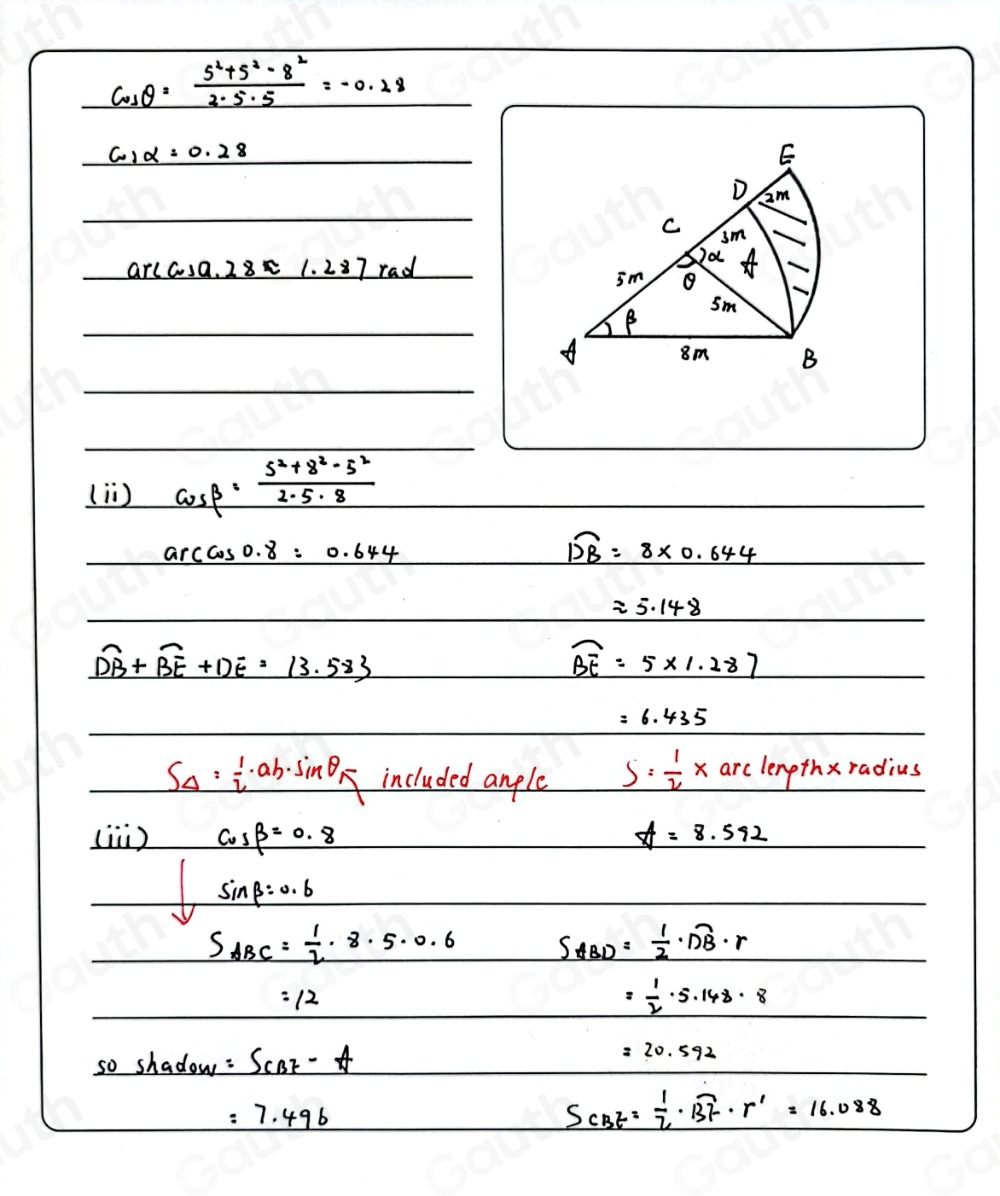 cosθ = (5²+5²-8²)/(2·5·5) = -0.28
cosα = 0.28
arccos0.28 ≈ 1.287 rad
E
D 2m
C 3m
α A
5m θ
5m
β
A 8m B
(ii) cosβ = (5²+8²-5²)/(2·5·8)
arccos 0.8 = 0.644
D͡B = 8×0.644
≈ 5.148
D͡B + B͡E + DE = 13.583
B͡E = 5×1.287
= 6.435
S△ = 1/2·ab·sinθ ↖ included angle
S = 1/2 × arc length × radius
(iii) cosβ = 0.8
A = 8.592
sinβ = 0.6
S_ABC = 1/2 · 8 · 5 · 0.6
S_ABD = 1/2 · D͡B · r
= 12
= 1/2 · 5.148 · 8
= 20.592
so shadow = S_CBE - A
= 7.496
S_CBE = 1/2 · B͡E · r' = 16.088
Gauth